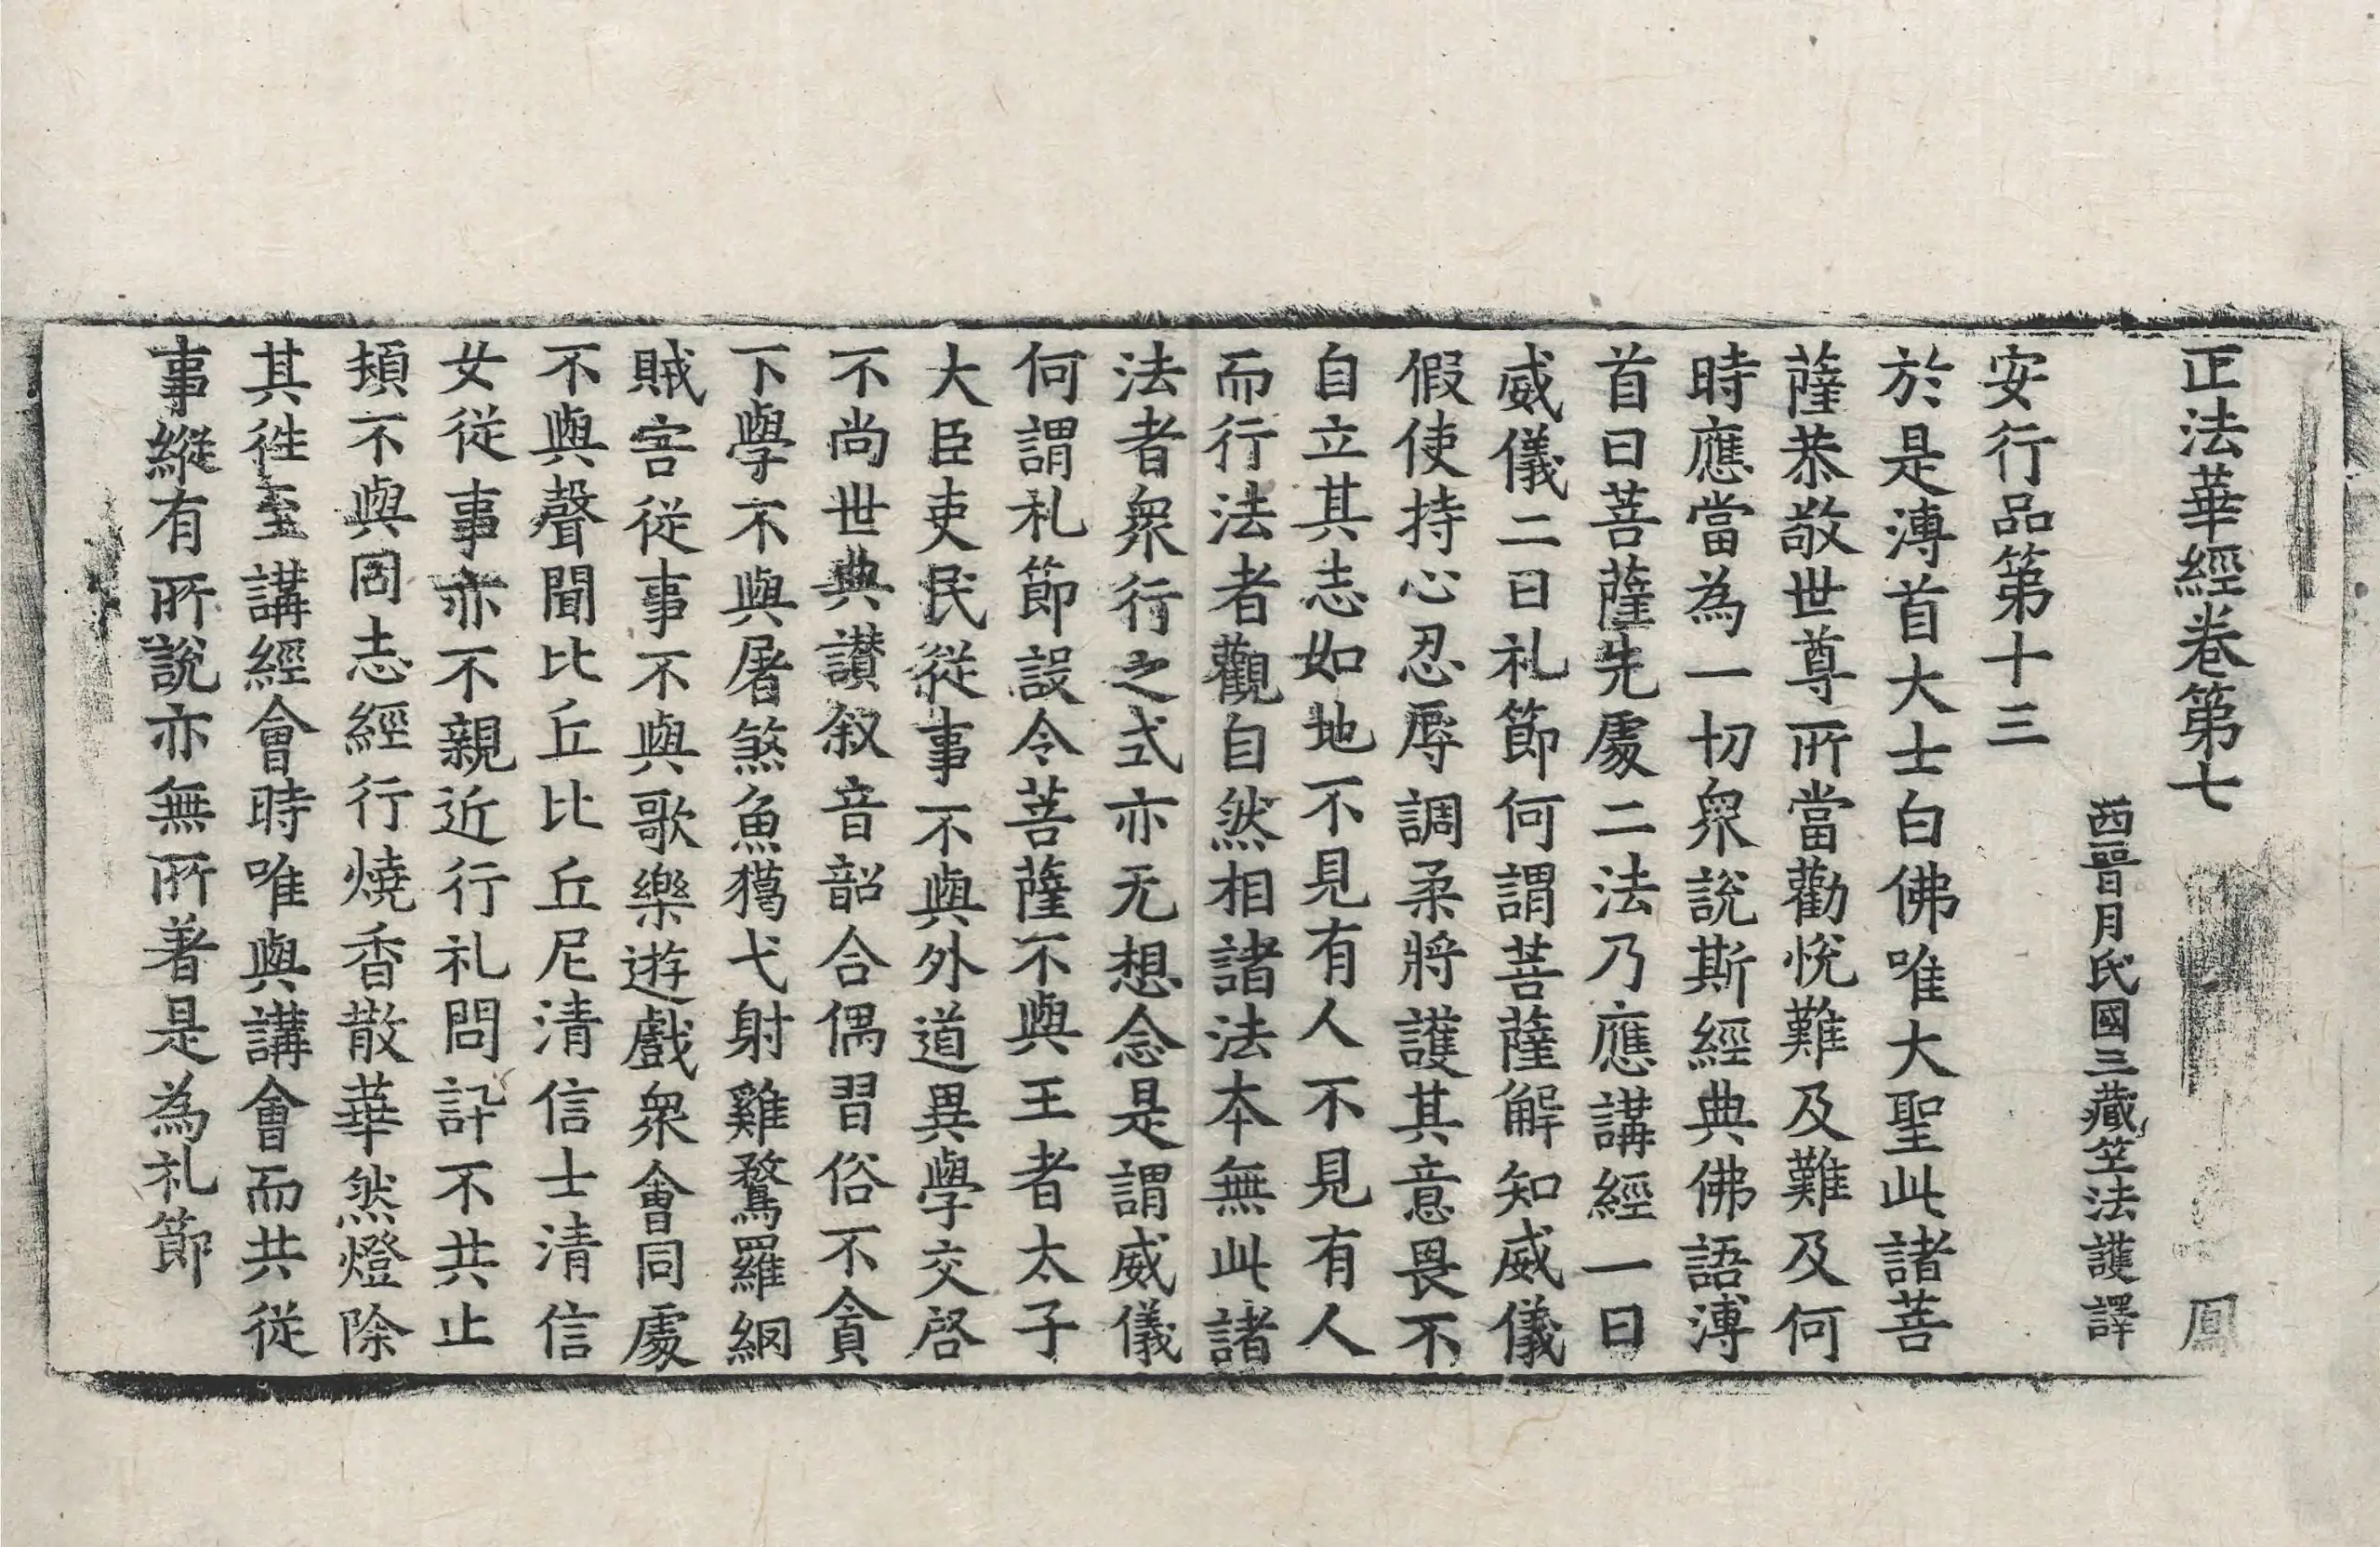 正法華經卷第七　鳳
西晉月氏國三藏竺法護譯
安行品第十三
於是溥首大士白佛唯大聖此諸菩
薩恭敬世尊所當勸悅難及難及何
時應當為一切眾說斯經典佛語溥
首曰菩薩先處二法乃應講經一曰
威儀二曰礼節何謂菩薩解知威儀
假使持心忍辱調柔將護其意畏不
自立其志如地不見有人不見有人
而行法者觀自然相諸法本無此諸
法者眾行之式亦无想念是謂威儀
何謂礼節設令菩薩不與王者太子
大臣吏民從事不與外道異學交啓
不尚世典讃叙音韶合偶習俗不貪
下學不與屠煞魚獦弋射雞鶩羅網
賊害從事不與歌樂遊戲眾會同處
不與聲聞比丘比丘尼清信士清信
女從事亦不親近行礼問訊不共止
頓不與同志經行燒香散華然燈除
其徃至講經會時唯與講會而共從
事縱有所說亦無所著是為礼節